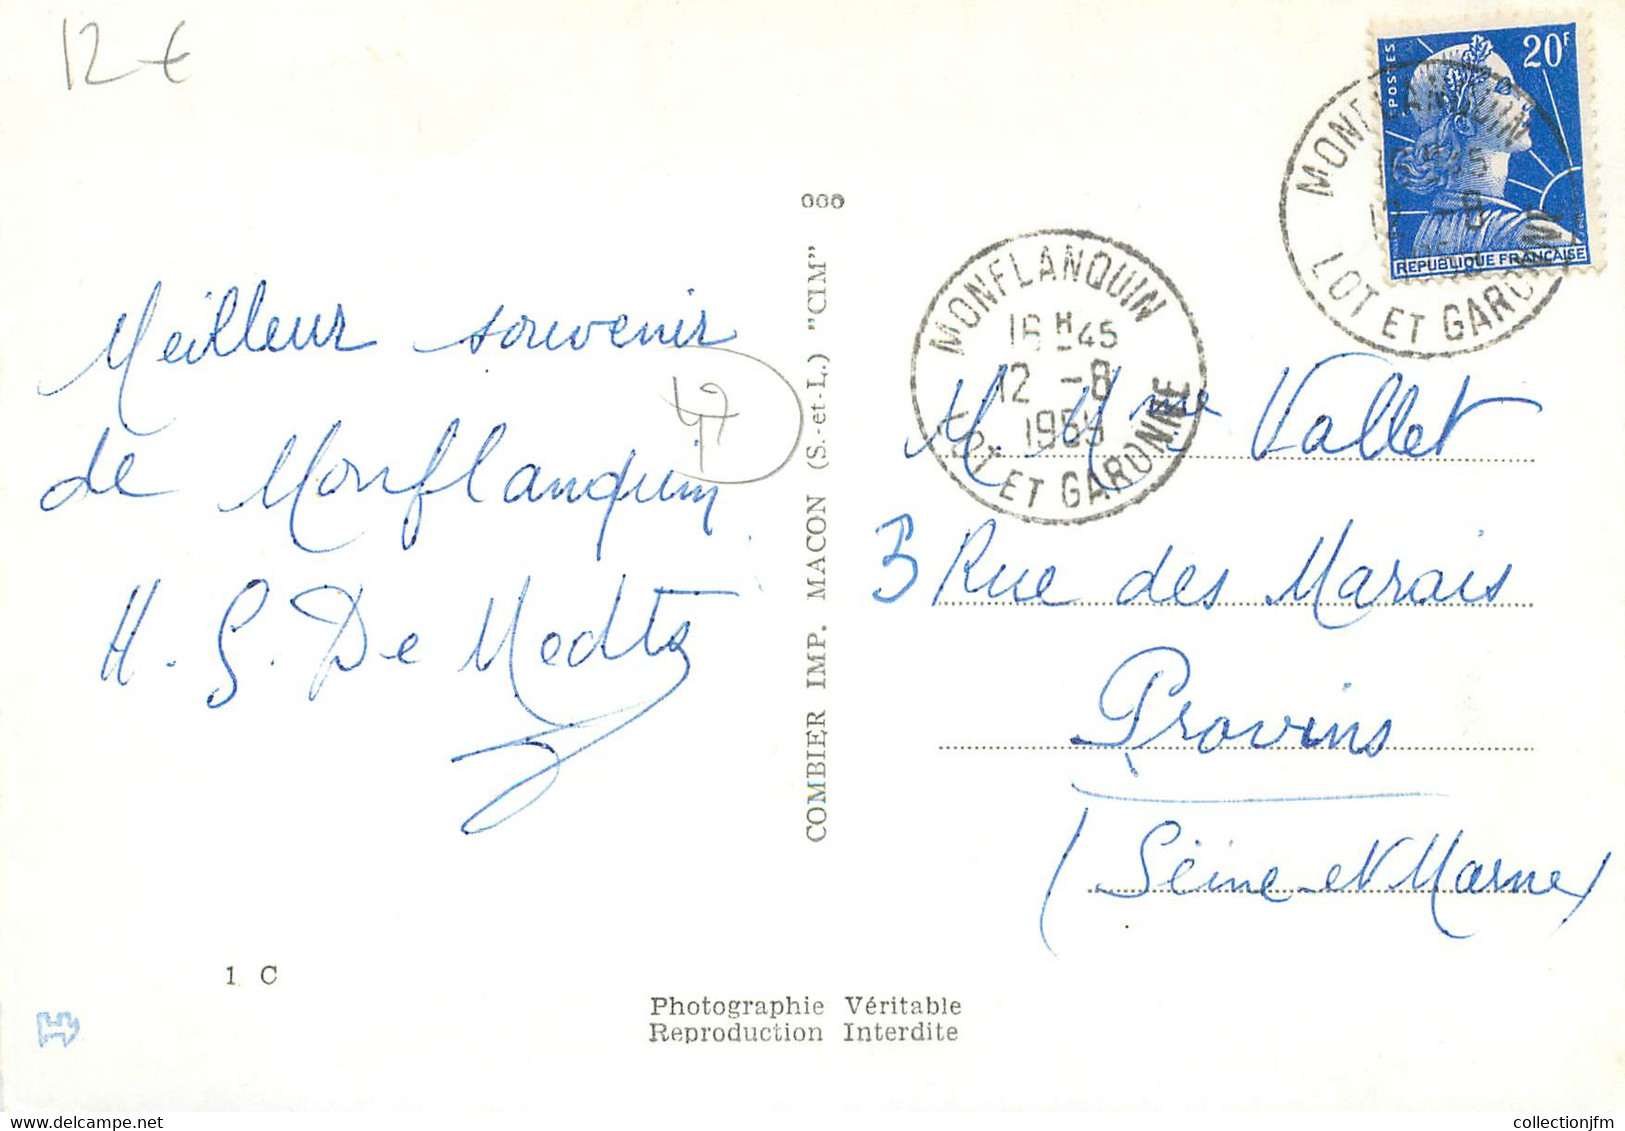 12 €
Meilleur souvenir
de Monflanquin
H. G. De
47
000
COMBIER IMP. MACON (S.-et-L.) "CIM"
MONFLANQUIN
16 H 45
12 -8
LOT ET GARONNE
POSTES
20F
REPUBLIQUE FRANÇAISE
MONFLANQUIN
LOT ET GARONNE
M Mme Vallet
3 Rue des Marais
Provins
(Seine et Marne)
1 C
Photographie Véritable
Reproduction Interdite
collectionjfm